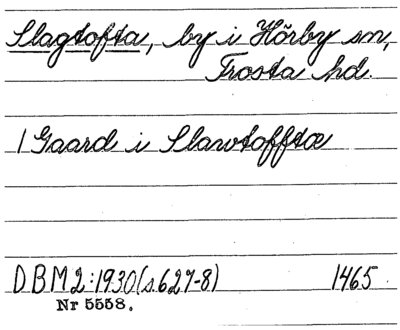 Slagtofta, by i Hörby sn,
Frosta hd.
1 Gaard i Slawtofftæ
DBM2:1930(s.627-8) 1465
Nr 5558.